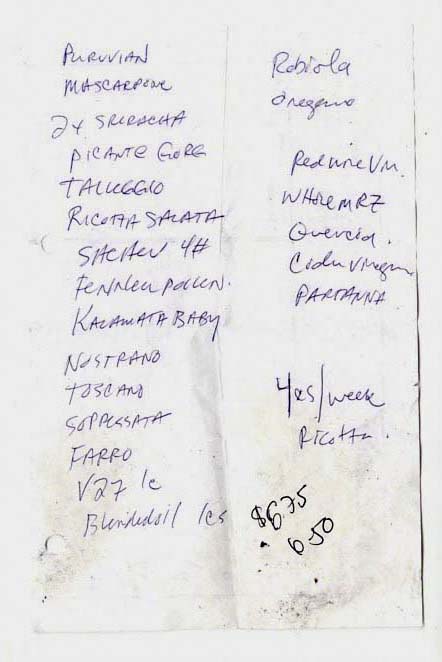 PURUVIAN
MASCARPONE
2x SRIRACHA
PICANTE GORG
TALLEGGIO
RICOTTA SALATA
4#
FENNEL POLLEN.
KALAMATA BABY
NOSTRANO
TOSCANO
SOPPESSATA
FARRO
V27 1c
Blended oil 1cs
Robiola
oregano
Red wine Vin.
WHole MRZ
Quercia.
Cider vinegar
PARTANNA
4cs/week
Ricotta.
$6.75
6.50